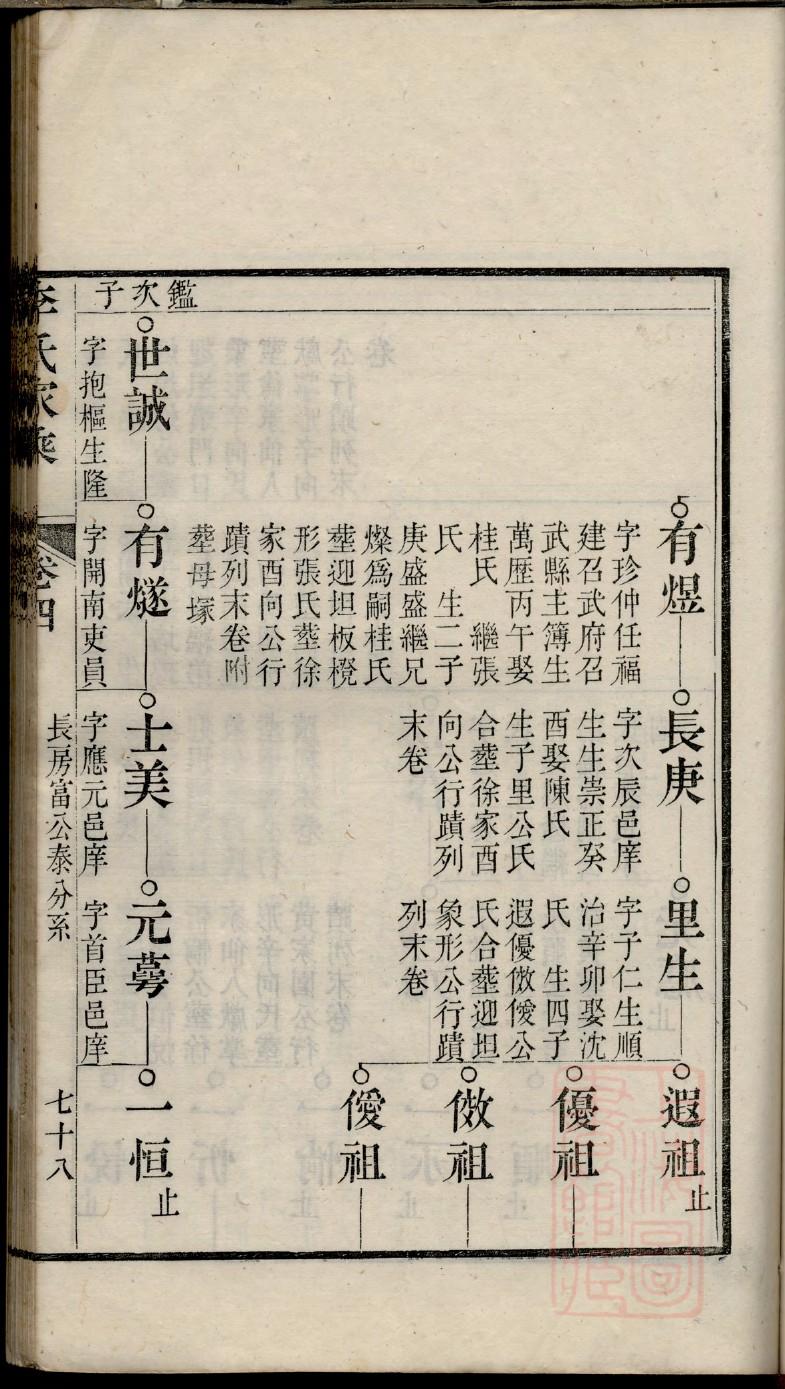 有煜
字珍仲任福
建召武府召
武縣主簿生
萬歷丙午娶
桂氏　繼張
氏　生二子
庚盛盛繼兄
燦爲嗣桂氏
塟迎坦板櫈
形張氏塟徐
家酉向公行
蹟列末卷附
塟母塚
長庚
字次辰邑庠
生生崇正癸
酉娶陳氏
生子里公氏
合塟徐家酉
向公行蹟列
末卷
里生
字子仁生順
治辛卯娶沈
氏　生四子
遐優傚僾公
氏合塟迎坦
象形公行蹟
列末卷
遐祖止
優祖
傚祖
僾祖
鑑次子
世誠
字抱樞生隆
有燧
字開南吏員
士美
字應元邑庠
元蕚
字首臣邑庠
一恒止
長房富公泰分系
七十八
李氏家乘
卷四